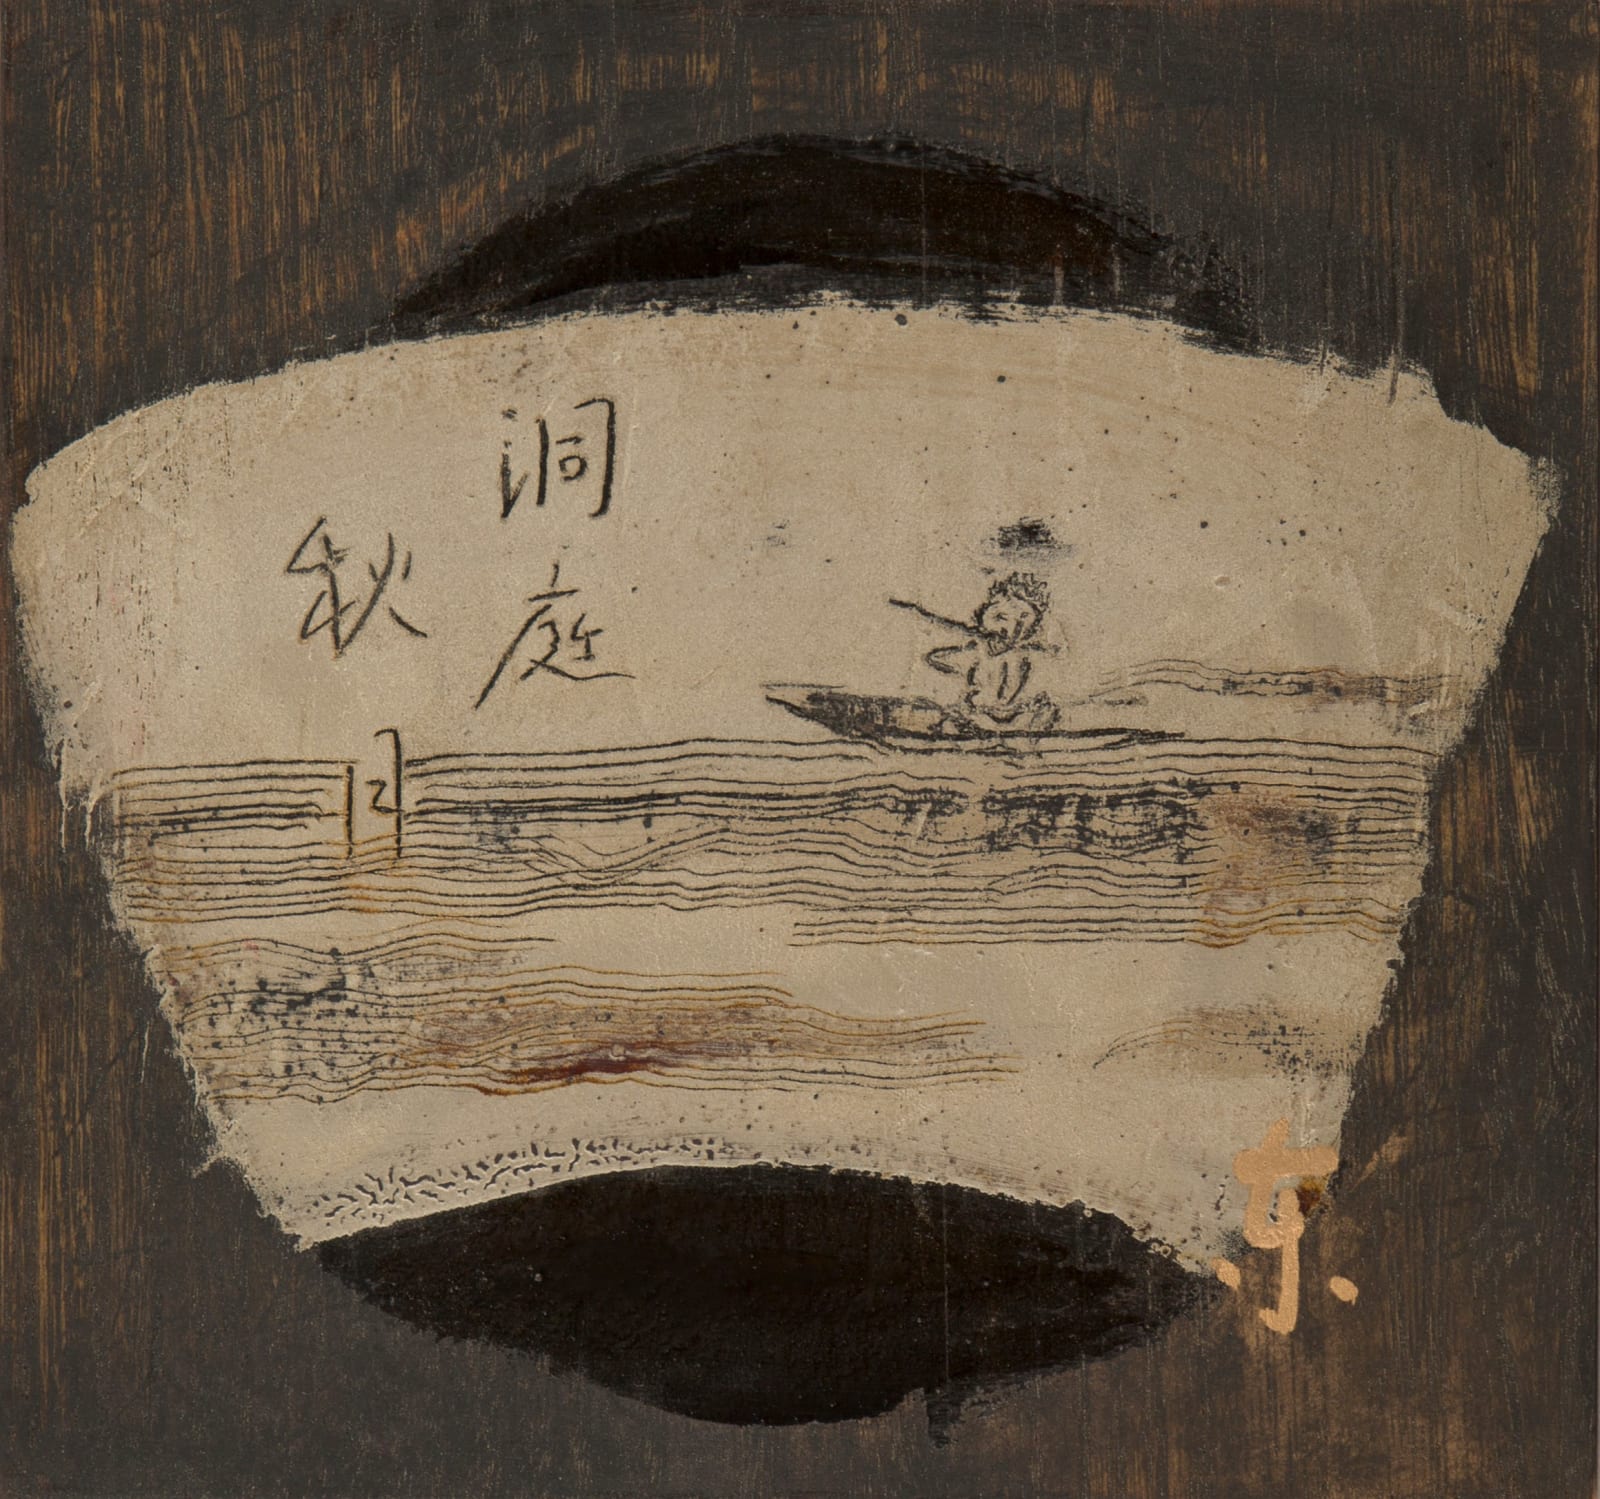 洞庭
秋月
东